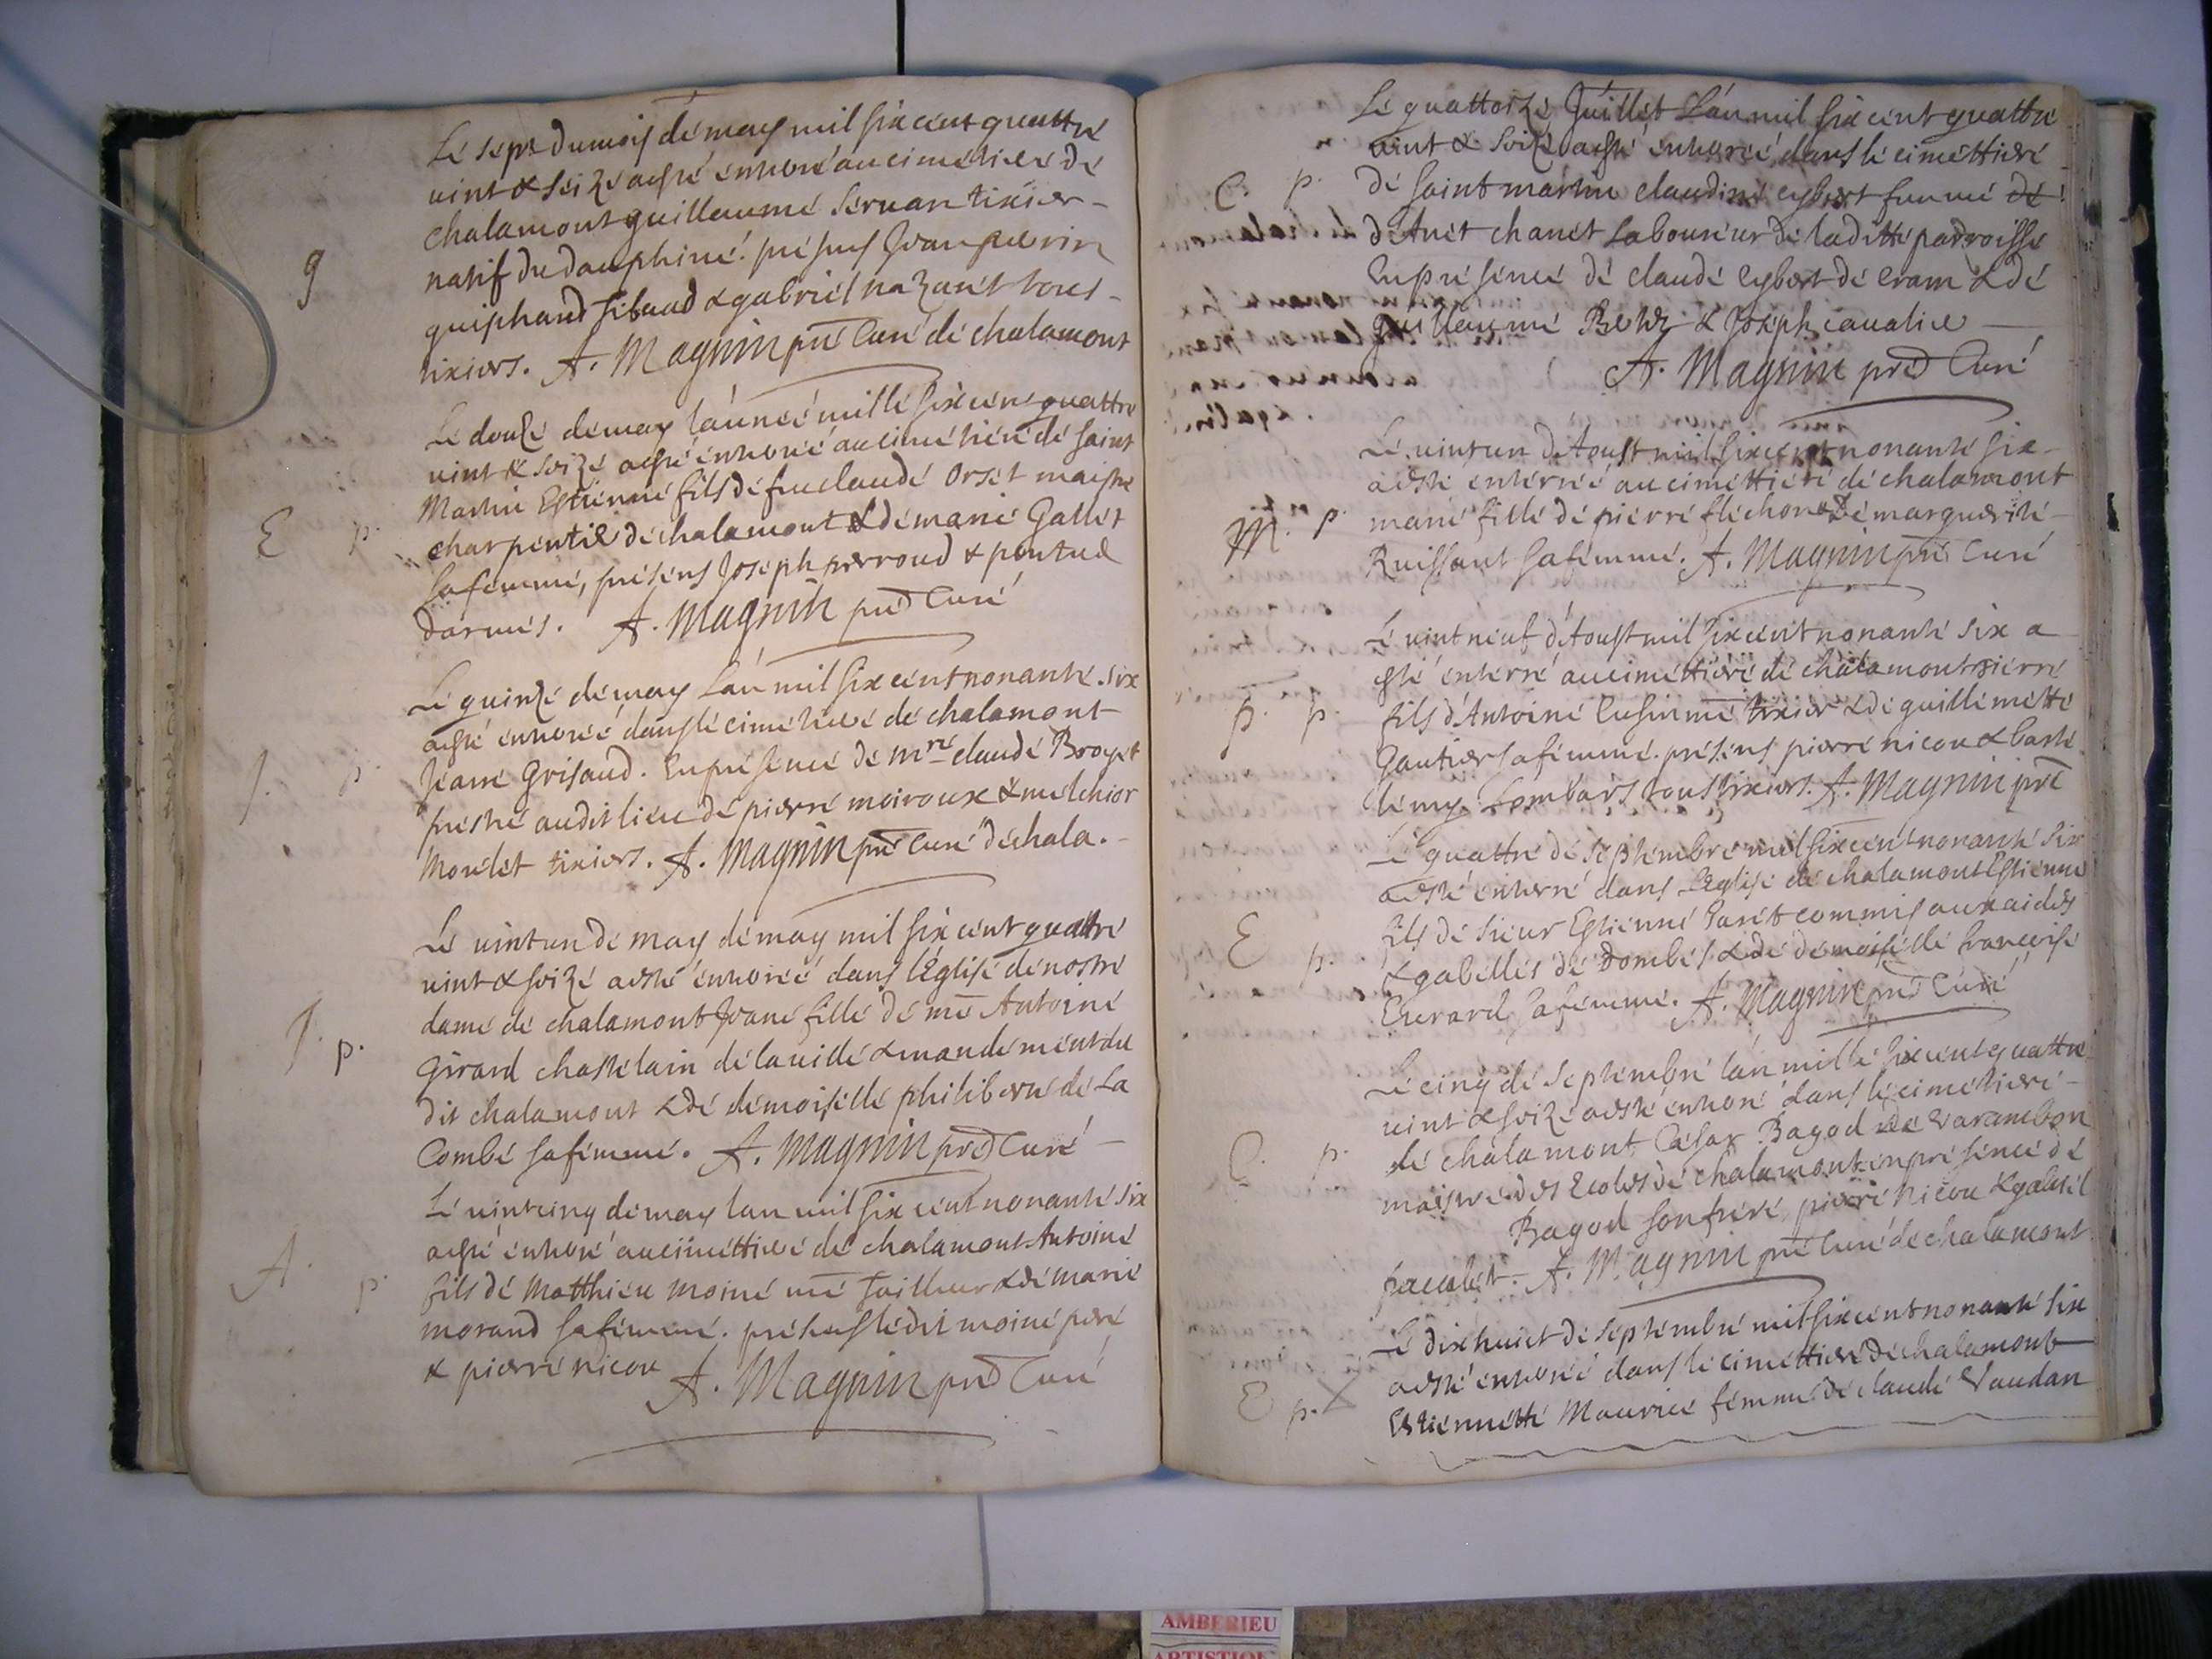 Le sept du mois de may mil six cent quattre
vint & seize a esté enterré au cimetiere de
chalamont guillaume servan tixier
natif du dauphiné. presens Jean perrin
g
guiphand sibuad & gabriel nazaret tous
tixiers. A. Magnin prē Curé de chalamont
Le douze de may l'année mille six cent quattre
vint & seize a esté enterré au cimetiere de saint
Martin Estienne fils de feu claude Orset maistre
E p.
charpentie de chalamont & de marie Gallet
sa femme, presens Joseph perroud & pontus
darmes. A. Magnin pred Curé
Le quinze de may L'an mil six cent nonante six
a esté enterré dans le cimetiere de chalamont
J. p.
Jeane Grisaud. En presence de mre claude Broyet
prestre audit lieu de pierre moiroux & melchior
Morélet tixiers. A. Magnin prē Curé de chala.
Le vint un de may de may mil six cent quattre
vint & seize a esté enterrée dans l'Eglise de nostre
dame de chalamont Jeane fille de mē Antoine
J. p.
Girard chastelain de la ville & mandement du
dit chalamont & de demoiselle philiberte de La
Combe sa femme. A. Magnin pred Curé
Le vint cinq de may lan mil six cent nonante six
a esté enterré au cimettiere de chalamont Antoine
A. p.
fils de Matthieu moine mē tailleur & de marie
morand sa femme. presens le dit moine pere
& pierre nicou A. Magnin pred Curé
Le quattorze Juillet L'an mil six cent quattre
vint & seize a esté enterrée dans le cimettiere
C. p.
de saint martin claudine eybert femme de
d'Anet chanet Laboureur de laditte parroisse
En presence de claude eybert de cram & de
guillaume & Joseph cavalie
A. Magnin pred Curé
Le vint un d'Aoust mil six cent nonante six
a esté enterrée au cimettiere de chalamont
M. p.
marie fille de pierre fléchon & de marguerite
Ruissant sa femme. A. Magnin prē Curé
Le vint neuf d'Aoust mil six cent nonante six a
esté enterré au cimettiere de chalamont pierre
P. p.
fils d'Antoine Cusin mē tixier & de guillemette
Gautier sa femme. presens pierre nicou & barte
lemy Lombars tous tixiers. A. Magnin prē
Le quattre de septembre mil six cent nonante six
a esté enterré dans L'Eglise de chalamont Estienne
E p.
fils de sieur Estienne Garét commis aux aides
& gabelles de Dombes & de demoiselle francoise
Everard sa femme. A. Magnin pred Curé
Le cinq de septembre l'an mille six cent quattre
vint & seize a esté enterré dans le cimetiere
C. p.
de chalamont Cesar Bagod de Varambon
maistre des Ecoles de chalamont en presence de
Bagod son frere pierre nicou & gabriel
A. Magnin prē Curé de chalamont
Le dix huict de septembre mil six cent nonante six
a esté enterrée dans le cimettiere de chalamont
E p.
Estiennette Maurice femme de claude Vaudan
AMBERIEU
ARTISTIQUE